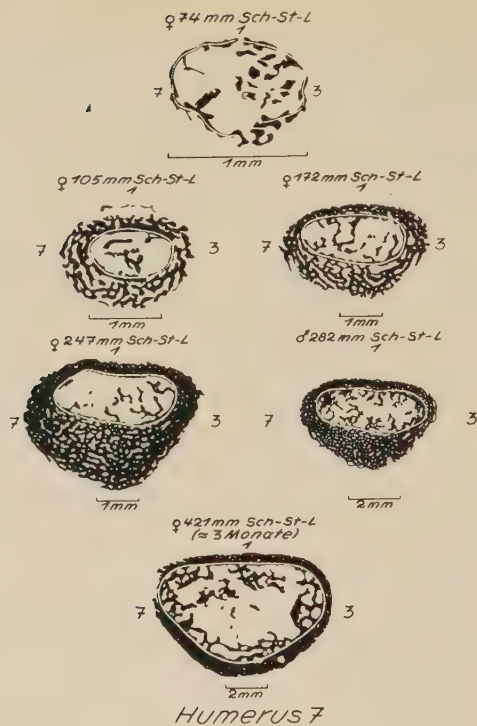 ♀ 74 mm Sch-St-L
1
7 3
1mm
♀ 105 mm Sch-St-L
1
7 3
1mm
♀ 172 mm Sch-St-L
1
7 3
1mm
♀ 247 mm Sch-St-L
1
7 3
1mm
♂ 282 mm Sch-St-L
1
7 3
2mm
♀ 421 mm Sch-St-L
(≈ 3 Monate)
1
7 3
2mm
Humerus 7